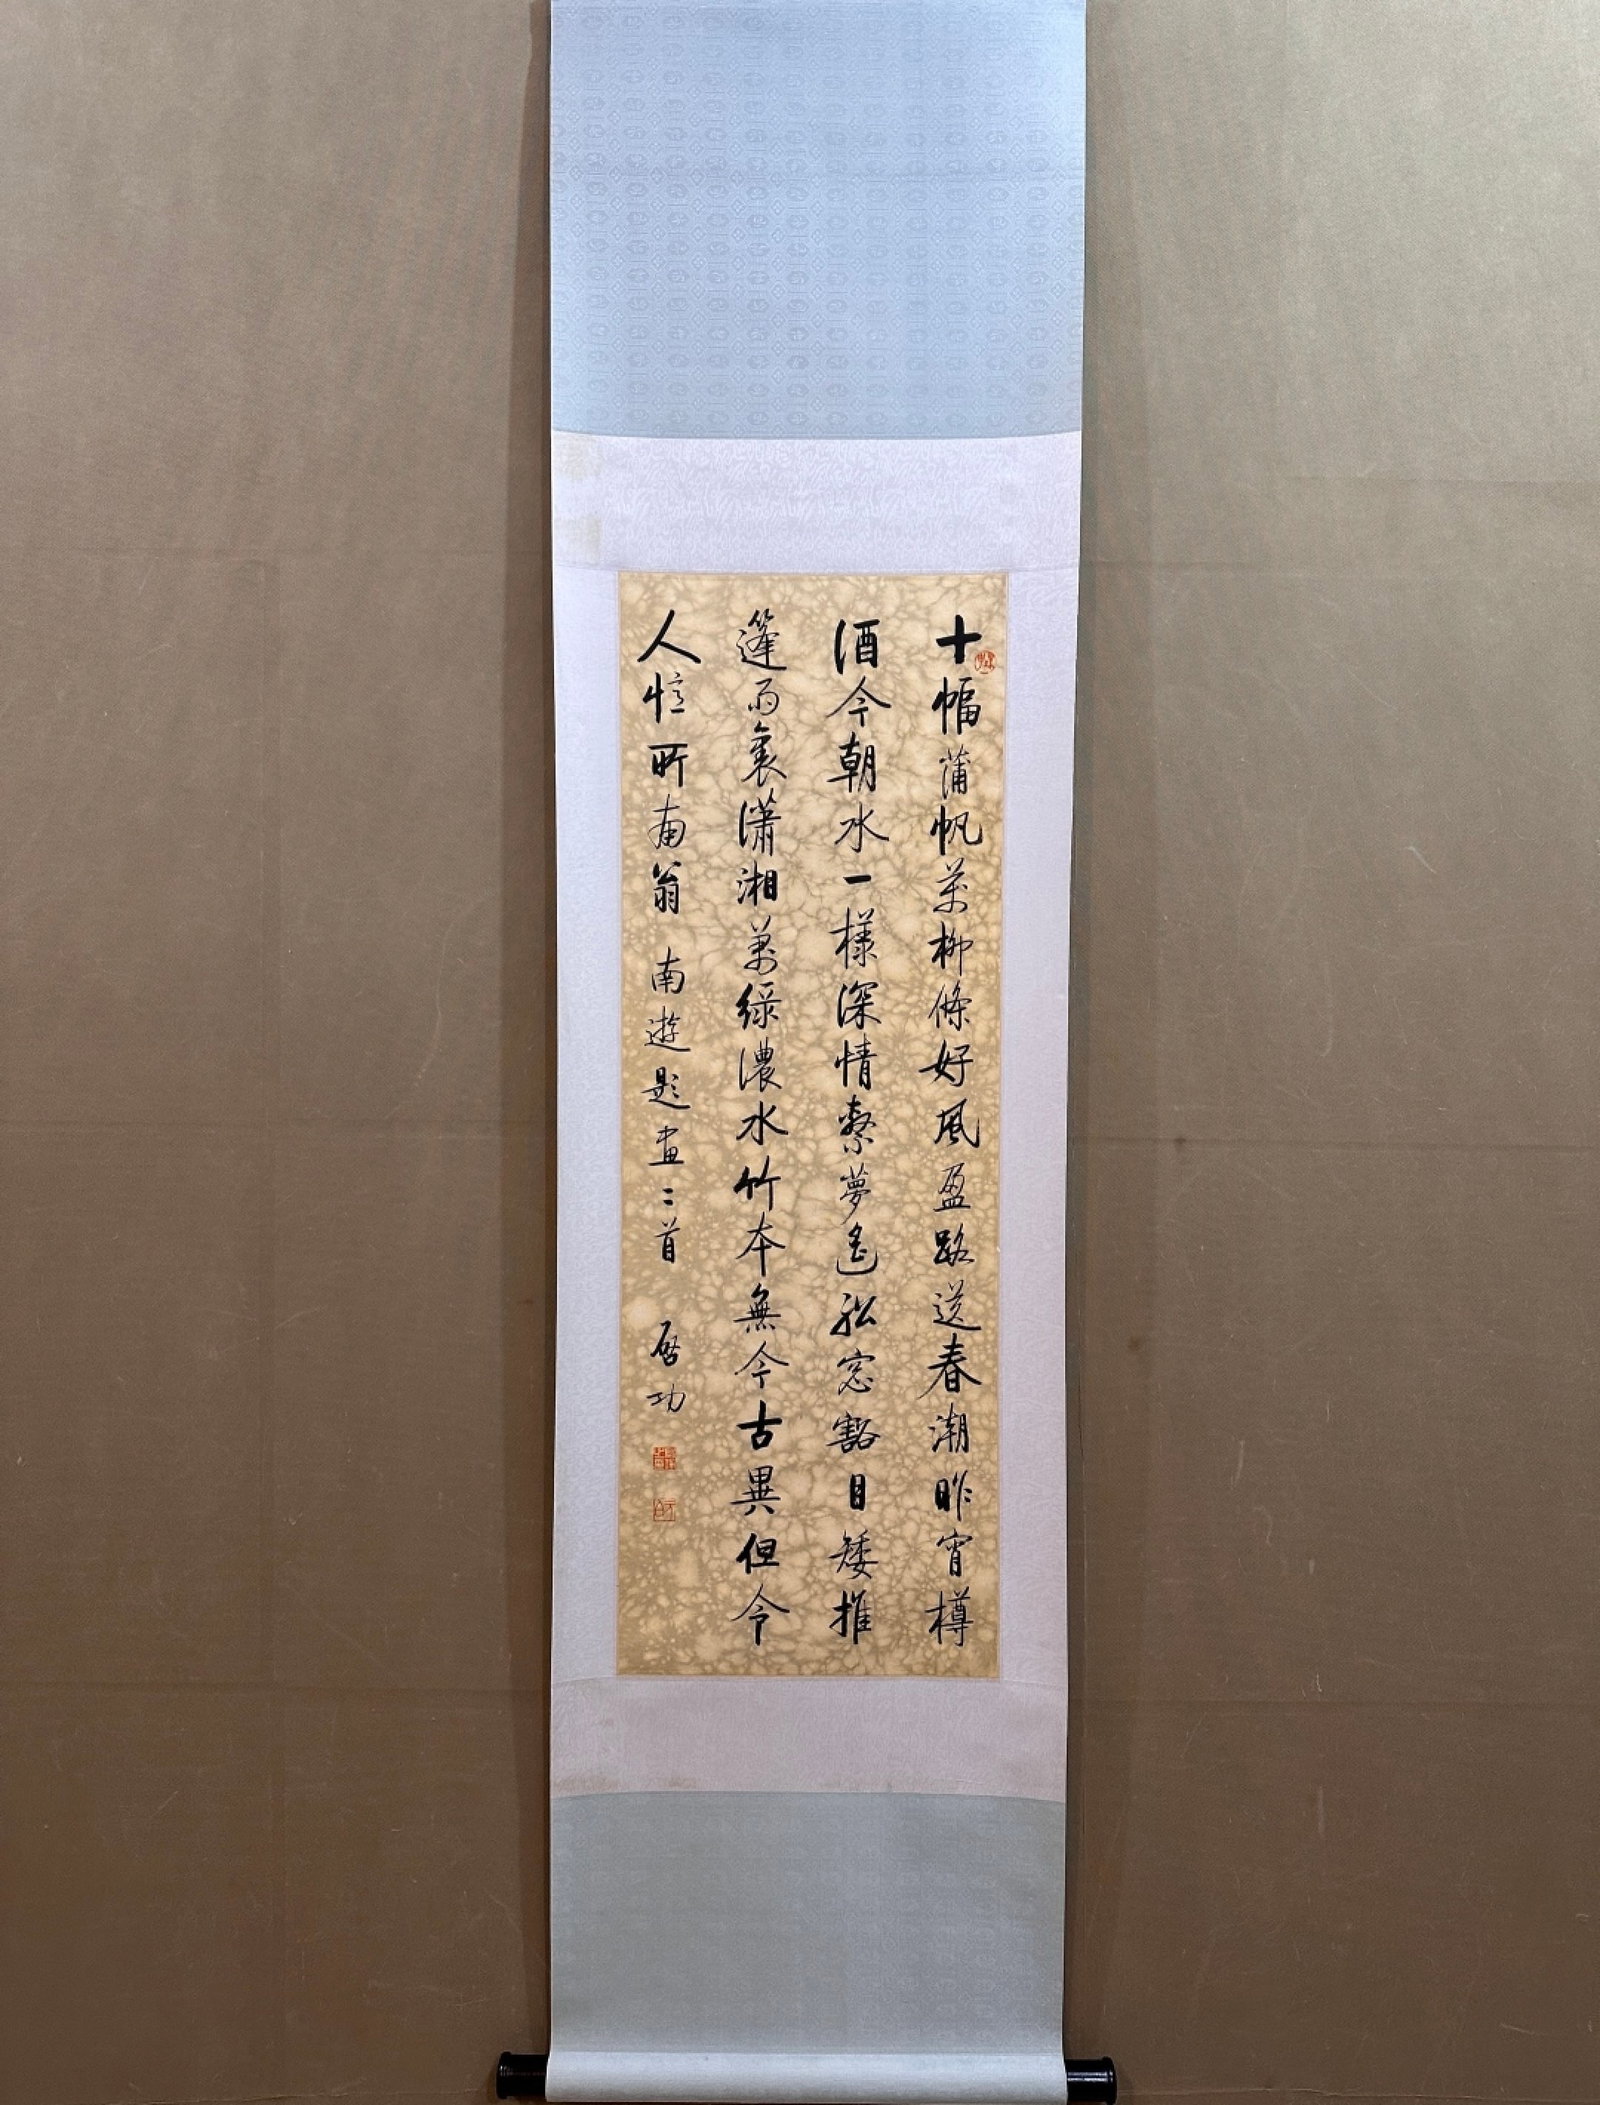 十幅蒲帆萬柳條好風盈路送春潮昨宵樽
酒今朝水一樣深情繫夢遙船窓豁目矮推
篷雨裏瀟湘萬綠濃水竹本無今古異但令
人憶所南翁 南遊題畫二首 啓功